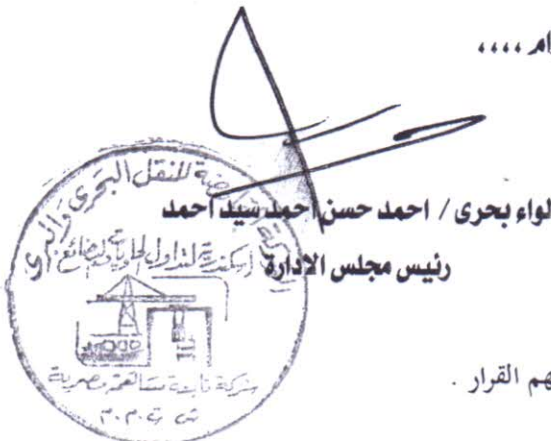 ام ،،،،
لواء بحرى / احمد حسن احمد سيد احمد
رئيس مجلس الادارة
للنقل البحرى والبرى
اسكندرية لتداول الحاويات والبضائع
شركة تابعة مساهمة مصرية
هم القرار .